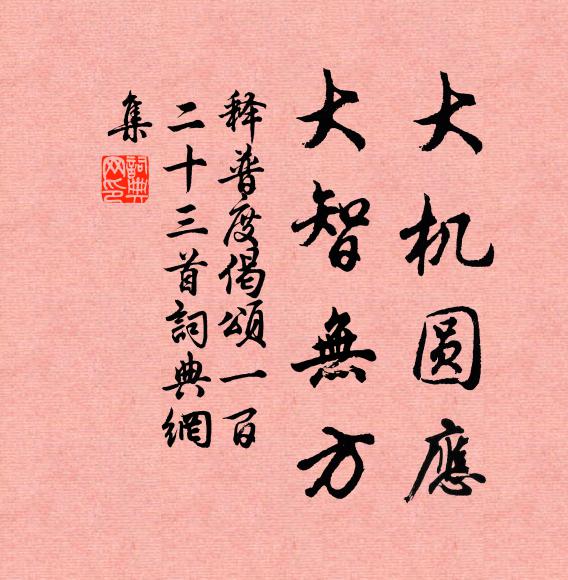 大机圆應
大智無方
释普度偈頌一百
二十三首詞典網
集
詞典
网印